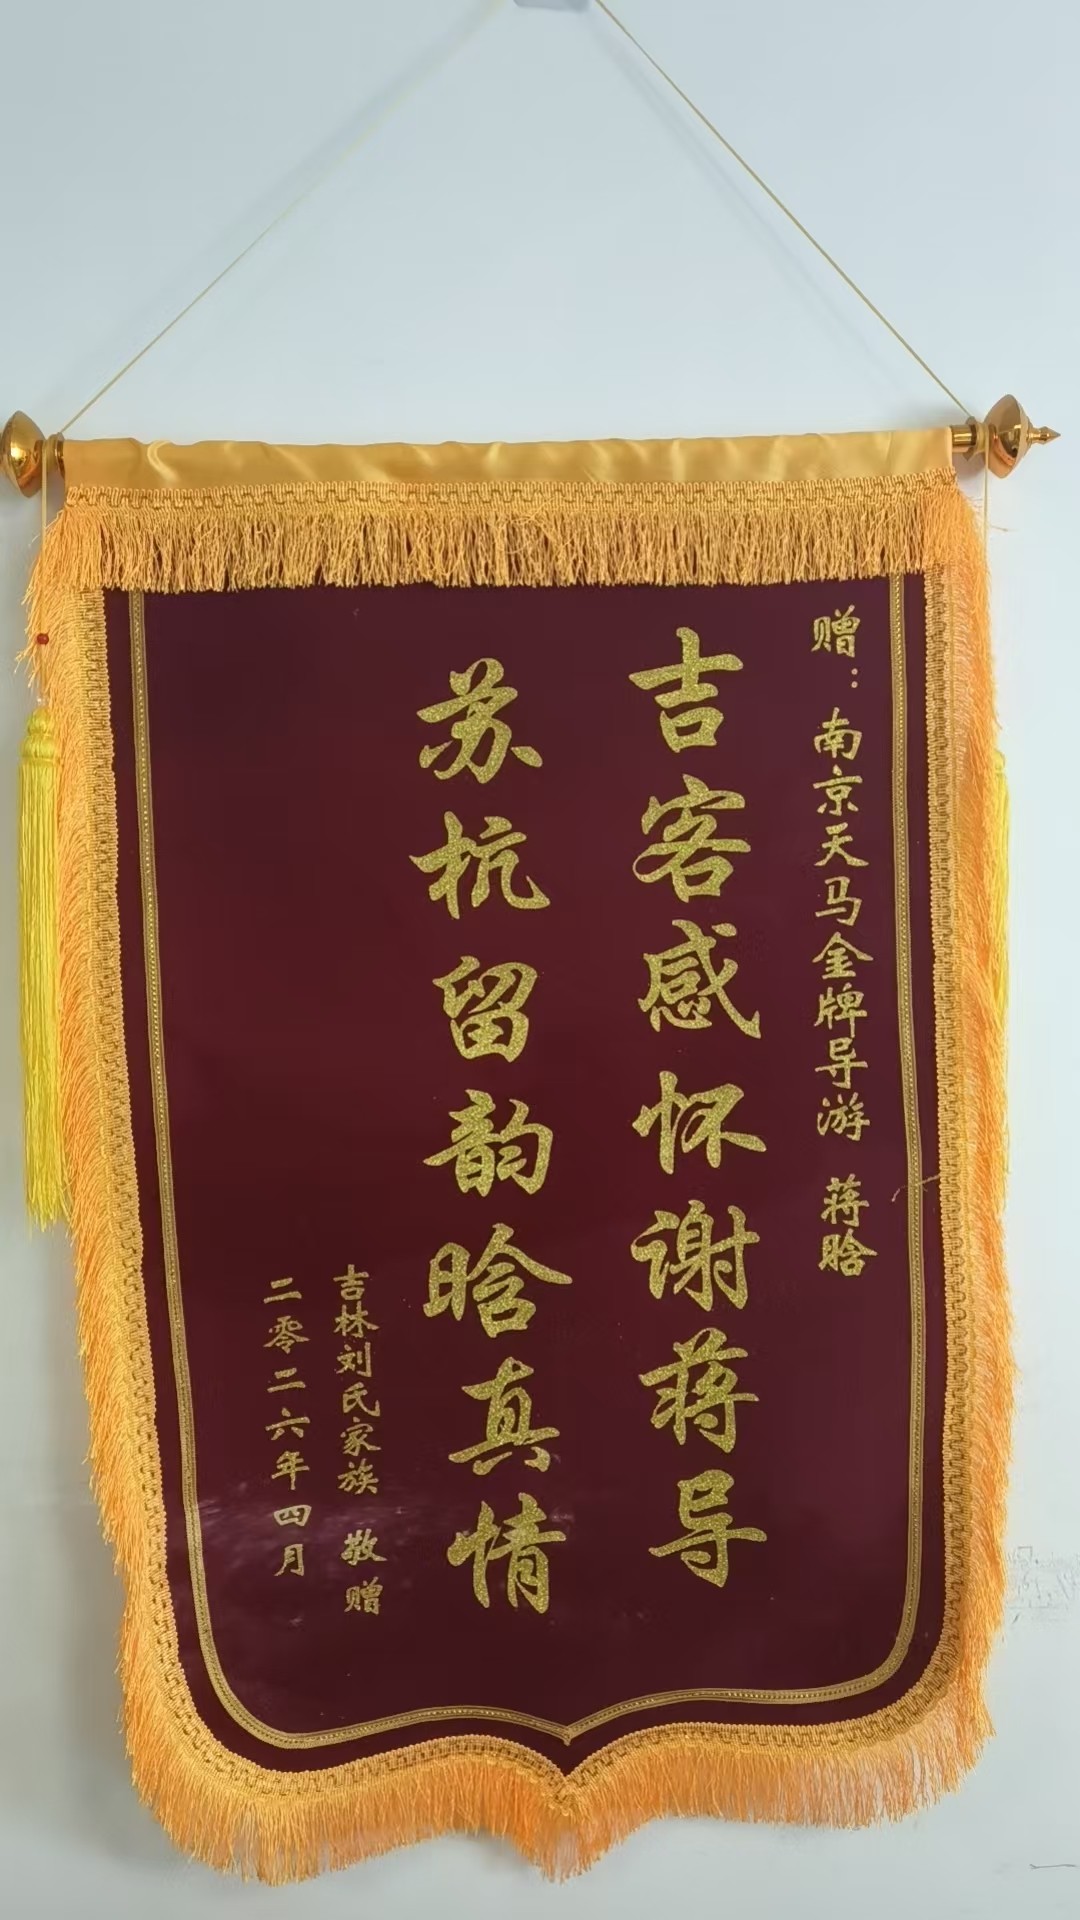 赠：南京天马金牌导游 蒋晗
吉客感怀谢蒋导
苏杭留韵晗真情
吉林刘氏家族 敬赠
二零二六年四月